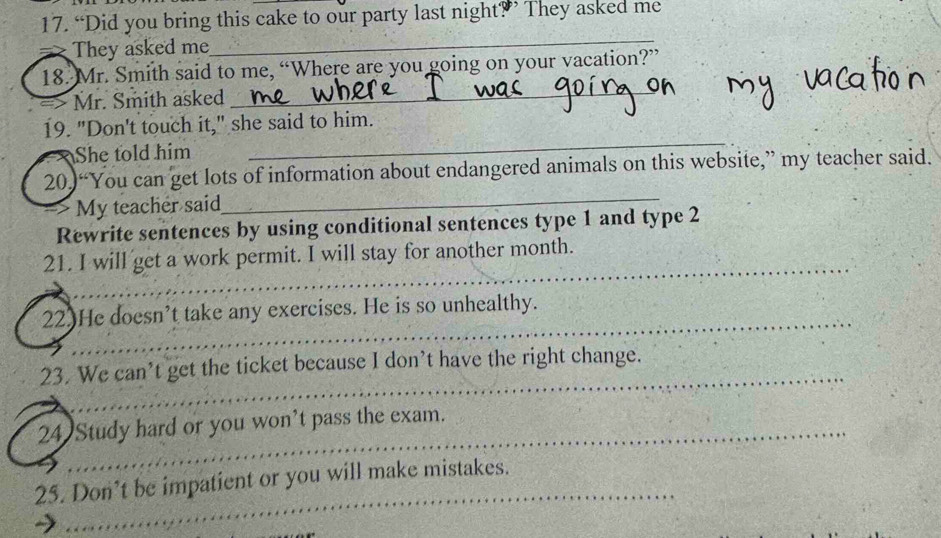 17. “Did you bring this cake to our party last night?” They asked me
=> They asked me
18. Mr. Smith said to me, “Where are you going on your vacation?”
=> Mr. Smith asked me where I was going on my vacation
19. "Don't touch it," she said to him.
She told him
20. “You can get lots of information about endangered animals on this website,” my teacher said.
=> My teacher said
Rewrite sentences by using conditional sentences type 1 and type 2
21. I will get a work permit. I will stay for another month.
22. He doesn’t take any exercises. He is so unhealthy.
23. We can’t get the ticket because I don’t have the right change.
24. Study hard or you won’t pass the exam.
25. Don’t be impatient or you will make mistakes.